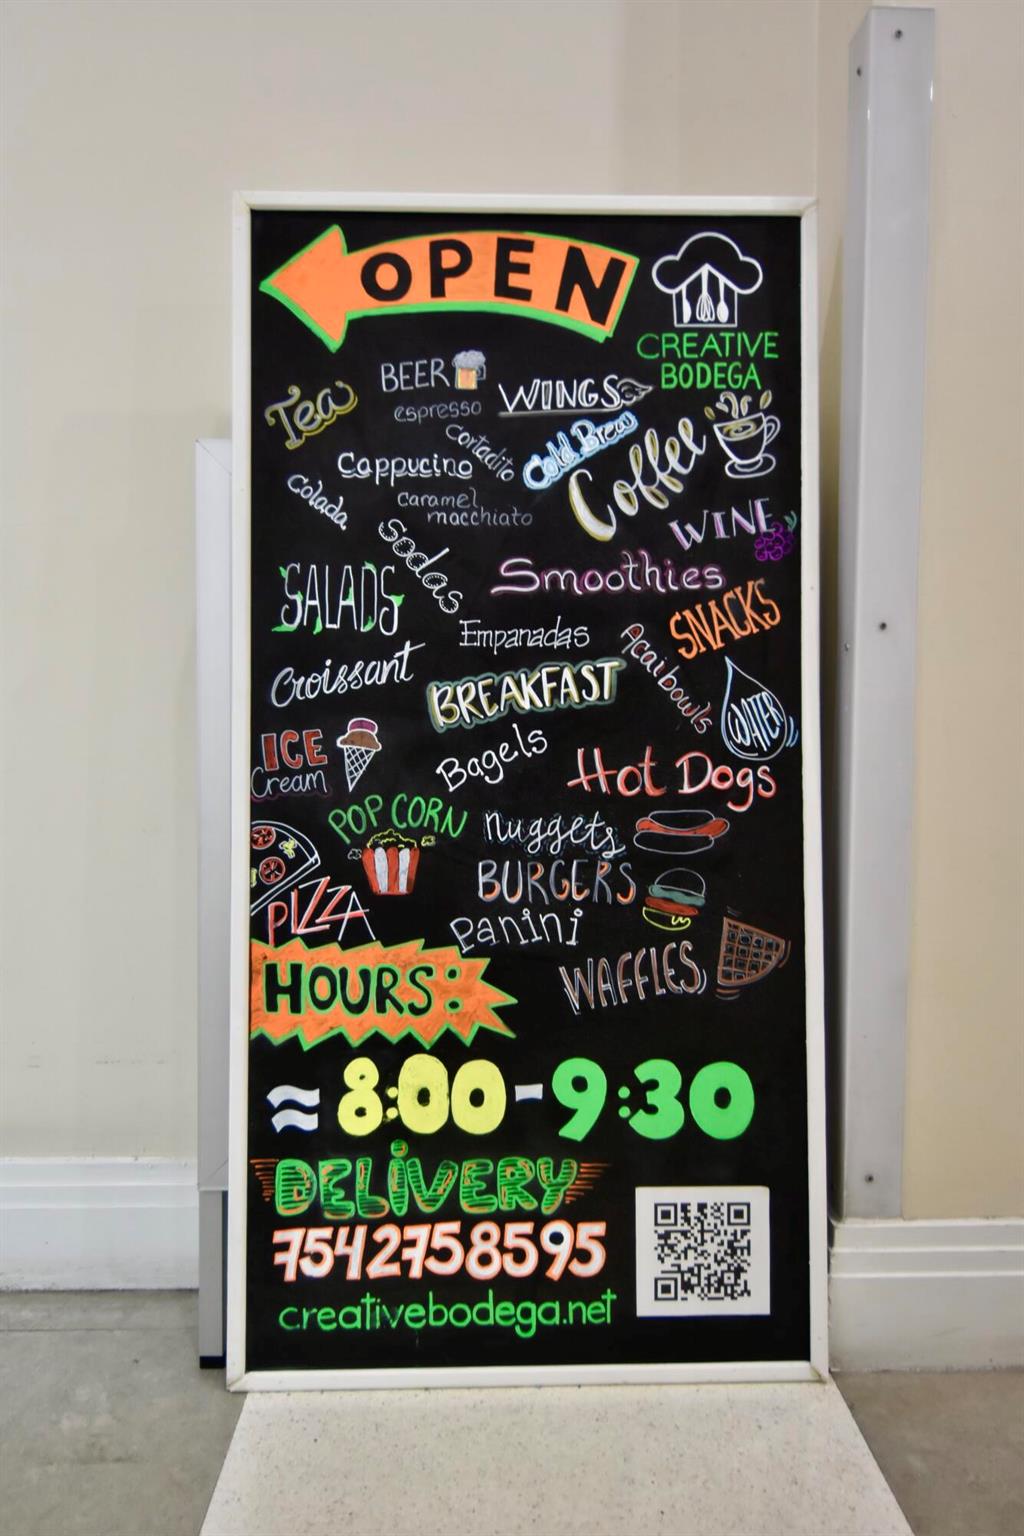 OPEN
CREATIVE
BODEGA
BEER
Tea
espresso
WINGS
Cortadito
Cold Brew
Coffee
Cappucino
Colada
caramel
macchiato
WINE
Sodas
SALADS
Smoothies
SNACKS
Empanadas
Acai bowls
Croissant
BREAKFAST
WATER
ICE
Cream
Bagels
Hot Dogs
POP CORN
Nuggets
BURGERS
PIZZA
Panini
WAFFLES
HOURS:
≈ 8:00-9:30
DELIVERY
7542758595
creativebodega.net